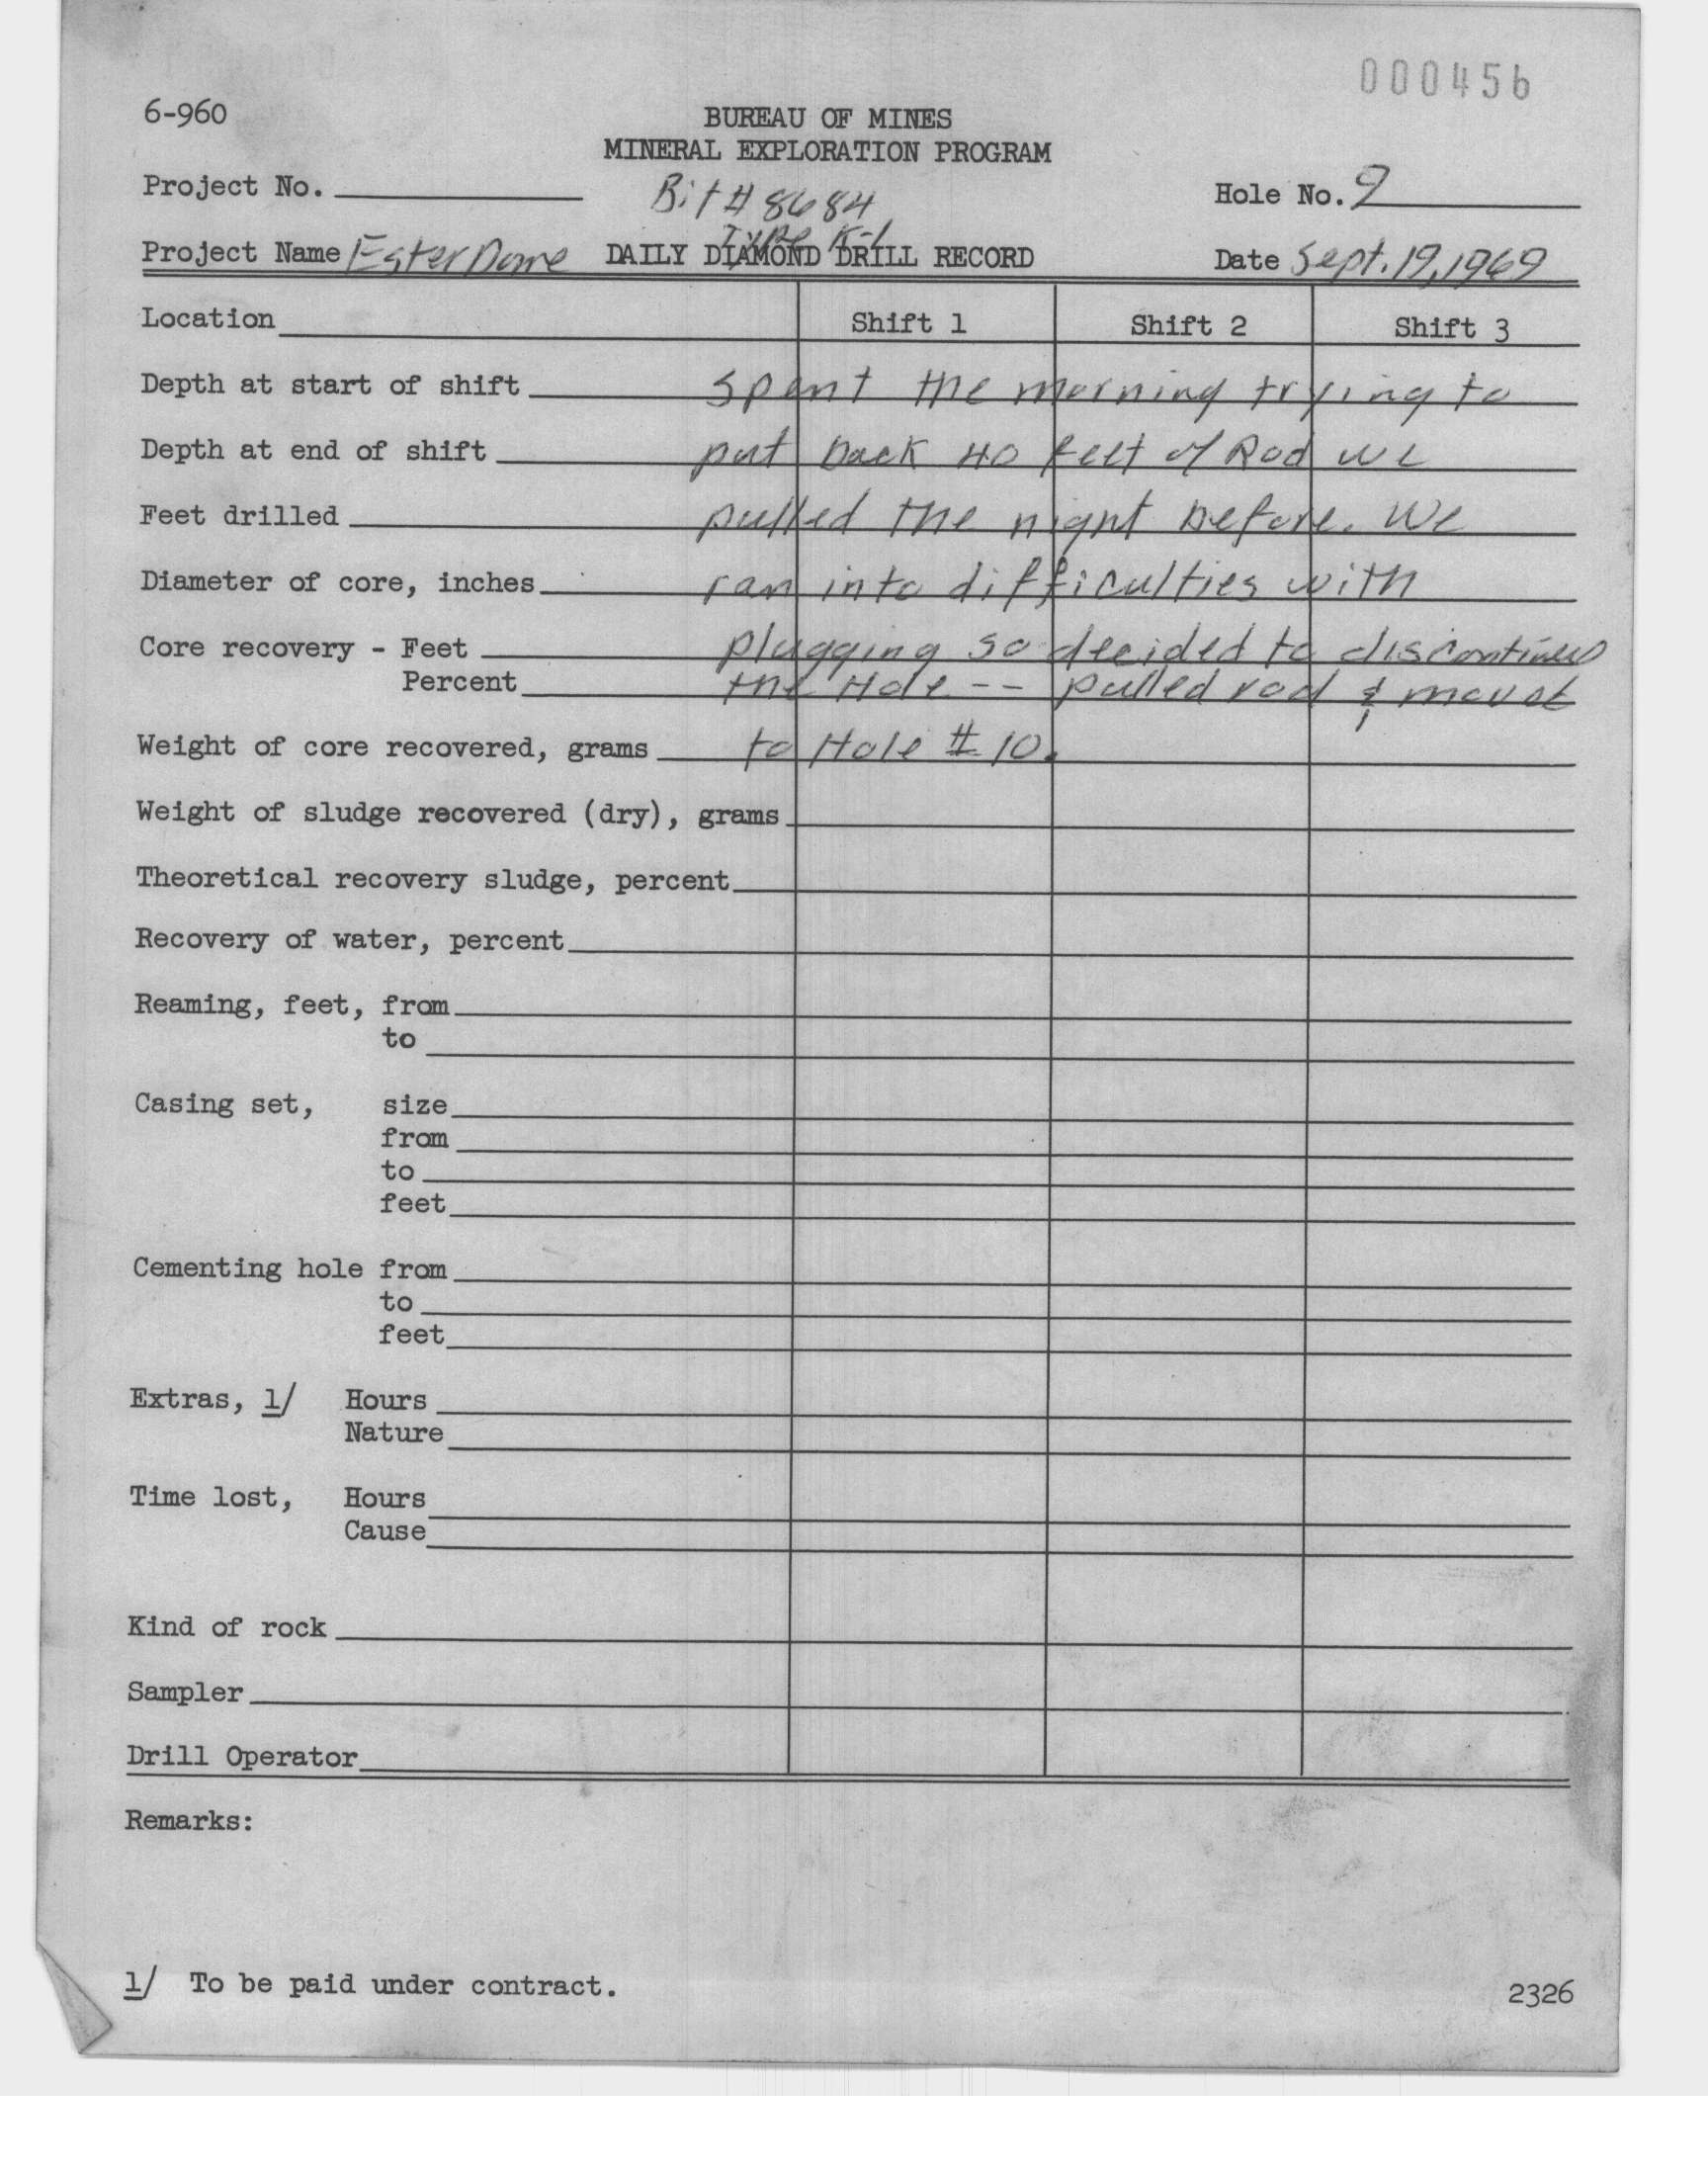 000456
6-960
BUREAU OF MINES
MINERAL EXPLORATION PROGRAM
Project No.
Bit # 8684
Hole No. 9
Type K-L
Project Name Ester Dome DAILY DIAMOND DRILL RECORD Date Sept. 19, 1969
Location Shift 1 Shift 2 Shift 3
Depth at start of shift spent the morning trying to
Depth at end of shift put back 40 feet of Rod we
Feet drilled pulled the night before. We
Diameter of core, inches ran into difficulties with
Core recovery - Feet plugging so decided to discontinue
Percent the Hole -- pulled rod & moved
Weight of core recovered, grams to Hole # 10.
Weight of sludge recovered (dry), grams
Theoretical recovery sludge, percent
Recovery of water, percent
Reaming, feet, from
to
Casing set, size
from
to
feet
Cementing hole from
to
feet
Extras, 1/ Hours
Nature
Time lost, Hours
Cause
Kind of rock
Sampler
Drill Operator
Remarks:
1/ To be paid under contract.
2326